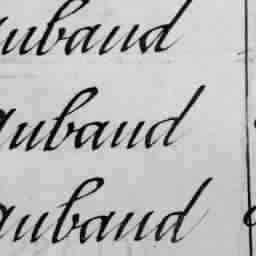 aubaud
aubaud
aubaud